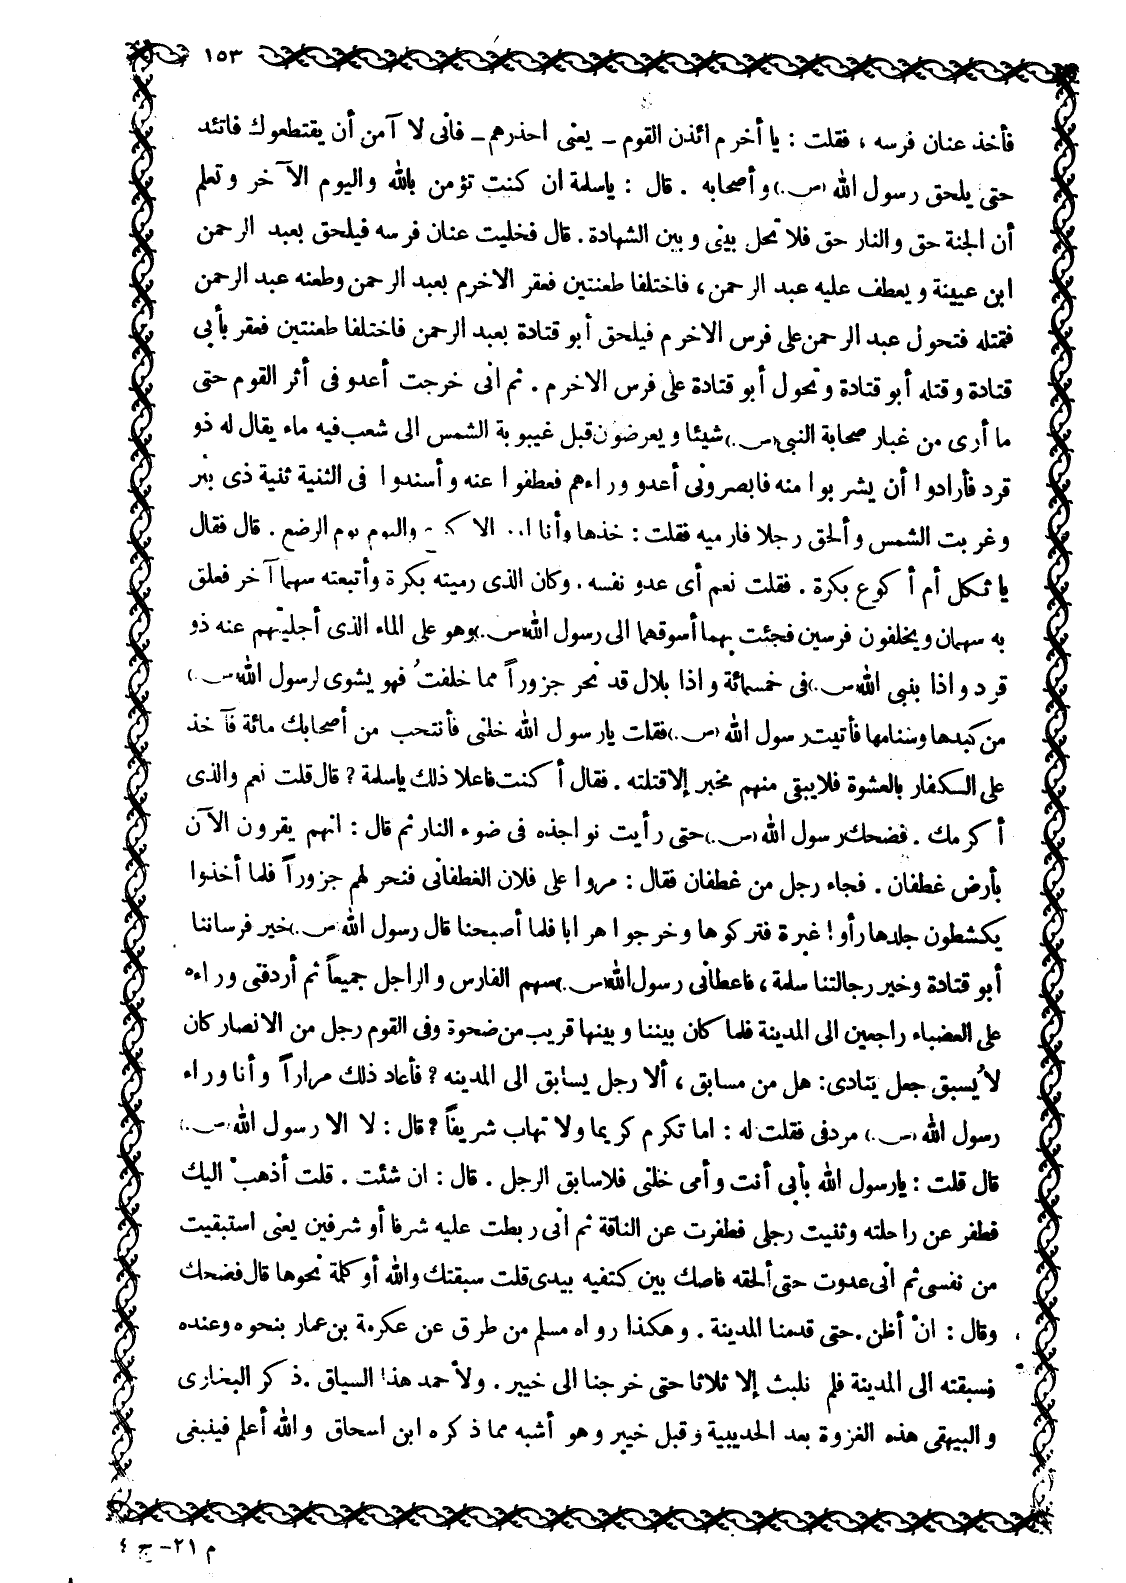 ١٥٣
فأخذ عنان فرسه ، فقلت : يا أخرم ائذن القوم ــ يعنى احذرهم ــ فانى لا آمن أن يقتطعوك فاتئد
حتى يلحق رسول الله (س.) وأصحابه . قال : ياسلمة ان كنت تؤمن بالله واليوم الآخر وتعلم
أن الجنة حق والنار حق فلا تحل بينى وبين الشهادة . قال فخليت عنان فرسه فيلحق بعبد الرحمن
ابن عيينة ويعطف عليه عبد الرحمن ، فاختلفا طعنتين فعقر الاخرم بعبد الرحمن وطعنه عبد الرحمن
فقتله فتحول عبد الرحمن على فرس الاخرم فيلحق أبو قتادة بعبد الرحمن فاختلفا طعنتين فعقر بأبى
قتادة وقتله أبو قتادة وتحول أبو قتادة على فرس الاخرم . ثم انى خرجت أعدو فى أثر القوم حتى
ما أرى من غبار صحابة النبى (س.) شيئا ويعرضون قبل غيبوبة الشمس الى شعب فيه ماء يقال له ذو
قرد فأرادوا أن يشربوا منه فابصرونى أعدو وراءهم فعطفوا عنه وأسندوا فى الثنية ثنية ذى بئر
وغربت الشمس وألحق رجلا فارميه فقلت : خذها وأنا الاكـ واليوم يوم الرضع . قال فقال
يا ثكل أم أكوع بكرة . فقلت نعم أى عدو نفسه . وكان الذى رميته بكرة وأتبعته سهما آخر فعلق
به سهمان ويخلفون فرسين فجئت بهما أسوقهما الى رسول الله (س.) وهو على الماء الذى أجليتهم عنه ذو
قرد واذا بنبى الله (س.) فى خمسمائة واذا بلال قد نحر جزوراً مما خلفتُ فهو يشوى لرسول الله (س.)
من كبدها وسنامها فأتيت رسول الله (س.) فقلت يا رسول الله خلنى فأنتخب من أصحابك مائة فآخذ
على الكفار بالعشوة فلا يبقى منهم مخبر إلا قتلته . فقال أكنت فاعلا ذلك ياسلمة ؟ قال قلت نعم والذى
أكرمك . فضحك رسول الله (س.) حتى رأيت نواجذه فى ضوء النار ثم قال : انهم يقرون الآن
بأرض غطفان . فجاء رجل من غطفان فقال : مروا على فلان الغطفانى فنحر لهم جزوراً فلما أخذوا
يكشطون جلدها رأوا غبرة فتركوها وخرجوا هرابا فلما أصبحنا قال رسول الله (س.) خير فرساننا
أبو قتادة وخير رجالتنا سلمة ، فاعطانى رسول الله (س.) سهم الفارس والراجل جميعاً ثم أردفنى وراءه
على العضباء راجعين الى المدينة فلما كان بيننا وبينها قريب من ضحوة وفى القوم رجل من الانصار كان
لا يُسبق جعل ينادى : هل من مسابق ، ألا رجل يسابق الى المدينه ؟ فأعاد ذلك مراراً وأنا وراء
رسول الله (س.) مردفى فقلت له : اما تكرم كريما ولا تهاب شريفاً ؟ قال : لا الا رسول الله (س.)
قال قلت : يارسول الله بأبى أنت وأمى خلنى فلاسابق الرجل . قال : ان شئت . قلت أذهبْ اليك
فطفر عن راحلته وثنيت رجلى فطفرت عن الناقة ثم انى ربطت عليه شرفا أو شرفين يعنى استبقيت
من نفسى ثم انى عدوت حتى ألحقه فاصك بين كتفيه بيدى قلت سبقتك والله أو كلمة نحوها قال فضحك
وقال : انْ أظن . حتى قدمنا المدينة . وهكذا رواه مسلم من طرق عن عكرمة بن عمار بنحوه وعنده
فسبقته الى المدينة فلم نلبث إلا ثلاثا حتى خرجنا الى خيبر . ولأحمد هذا السياق . ذكر البخارى
والبيهقى هذه الغزوة بعد الحديبية وقبل خيبر وهو أشبه مما ذكره ابن اسحاق والله أعلم فينبغى
م ٢١ - ج ٤